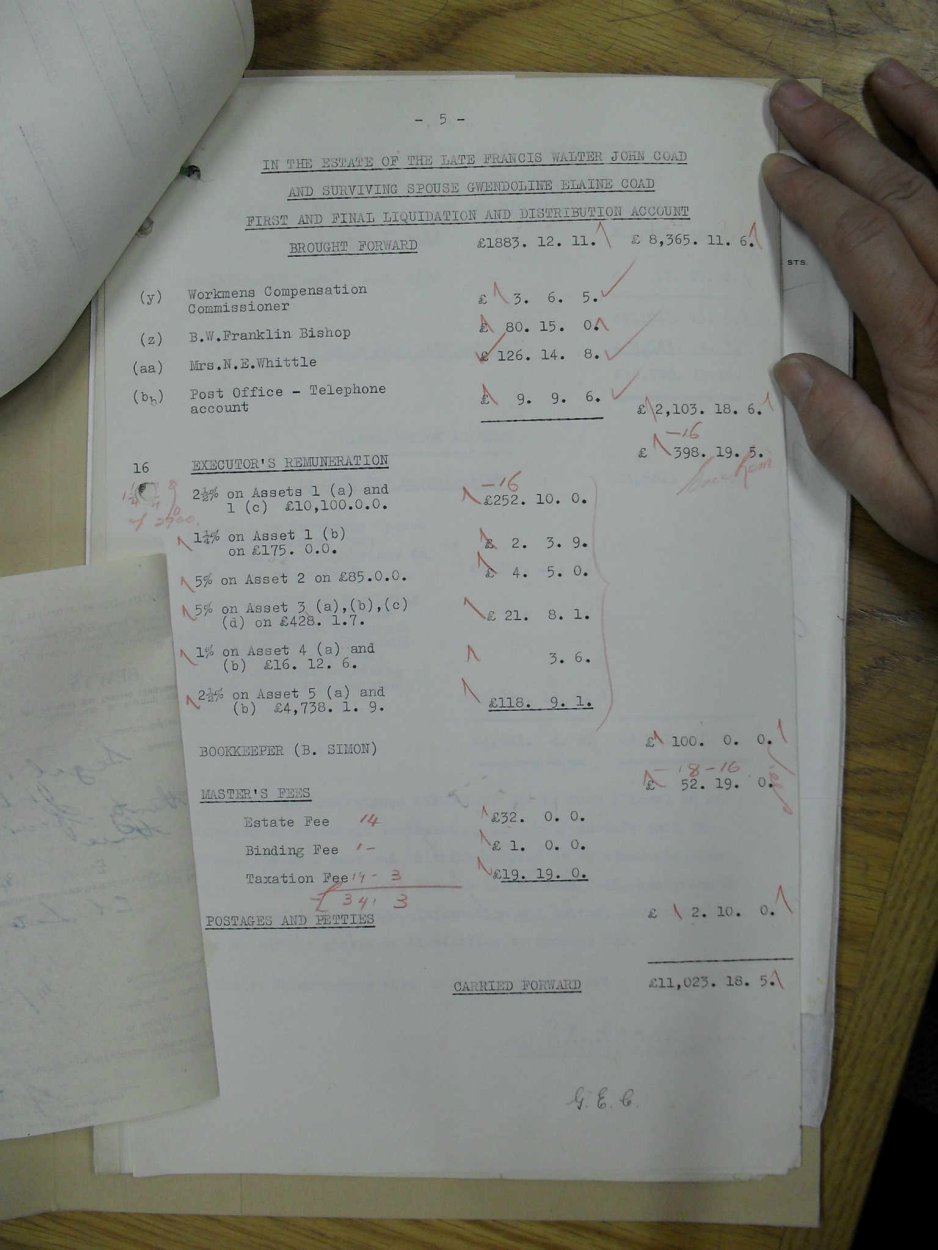 - 5 -
IN THE ESTATE OF THE LATE FRANCIS WALTER JOHN COAD
AND SURVIVING SPOUSE GWENDOLINE ELAINE COAD
FIRST AND FINAL LIQUIDATION AND DISTRIBUTION ACCOUNT
BROUGHT FORWARD £1883. 12. 11. £ 8,365. 11. 6.
STS.
(y) Workmens Compensation
Commissioner £ 3. 6. 5.
(z) B.W.Franklin Bishop £ 80. 15. 0.
(aa) Mrs.N.E.Whittle £ 126. 14. 8.
(bb) Post Office - Telephone
account £ 9. 9. 6. £ 2,103. 18. 6.
-16
£ 398. 19. 5.
16 EXECUTOR'S REMUNERATION
-16
2½% on Assets 1 (a) and
1 (c) £10,100.0.0. £252. 10. 0.
1¼% on Asset 1 (b)
on £175. 0.0. £ 2. 3. 9.
5% on Asset 2 on £85.0.0. £ 4. 5. 0.
5% on Asset 3 (a),(b),(c)
(d) on £428. 1.7. £ 21. 8. 1.
1% on Asset 4 (a) and
(b) £16. 12. 6. 3. 6.
2½% on Asset 5 (a) and
(b) £4,738. 1. 9. £118. 9. 1.
BOOKKEEPER (B. SIMON) £ 100. 0. 0.
-18-16
£ 52. 19. 0.
MASTER'S FEES
Estate Fee 14 £32. 0. 0.
Binding Fee 1- £ 1. 0. 0.
Taxation Fee 19-3 £19. 19. 0.
£34. 3
POSTAGES AND PETTIES £ 2. 10. 0.
CARRIED FORWARD £11,023. 18. 5.
G. E. C.